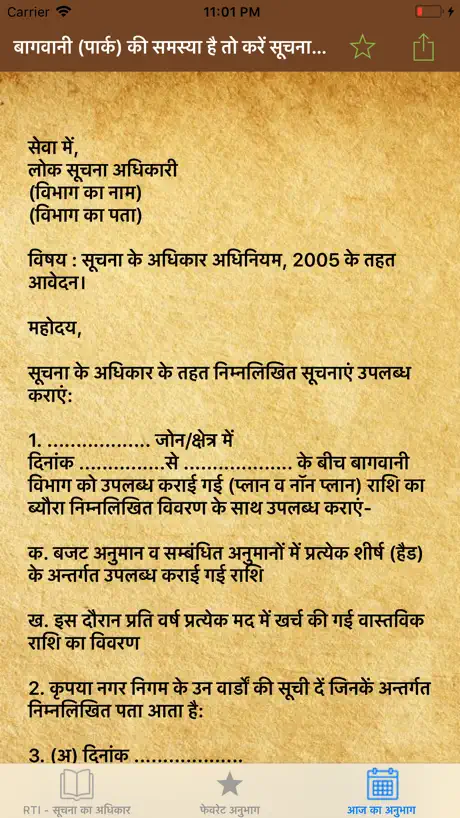 Carrier 11:01 PM
बागवानी (पार्क) की समस्या है तो करें सूचना...
सेवा में,
लोक सूचना अधिकारी
(विभाग का नाम)
(विभाग का पता)
विषय : सूचना के अधिकार अधिनियम, 2005 के तहत
आवेदन।
महोदय,
सूचना के अधिकार के तहत निम्नलिखित सूचनाएं उपलब्ध
कराएं:
1. .................. जोन/क्षेत्र में
दिनांक ...............से ................... के बीच बागवानी
विभाग को उपलब्ध कराई गई (प्लान व नॉन प्लान) राशि का
ब्यौरा निम्नलिखित विवरण के साथ उपलब्ध कराएं-
क. बजट अनुमान व सम्बंधित अनुमानों में प्रत्येक शीर्ष (हैड)
के अन्तर्गत उपलब्ध कराई गई राशि
ख. इस दौरान प्रति वर्ष प्रत्येक मद में खर्च की गई वास्तविक
राशि का विवरण
2. कृपया नगर निगम के उन वार्डों की सूची दें जिनकें अन्तर्गत
निम्नलिखित पता आता है:
3. (अ) दिनांक ...................
RTI - सूचना का अधिकार
फेवरेट अनुभाग
आज का अनुभाग